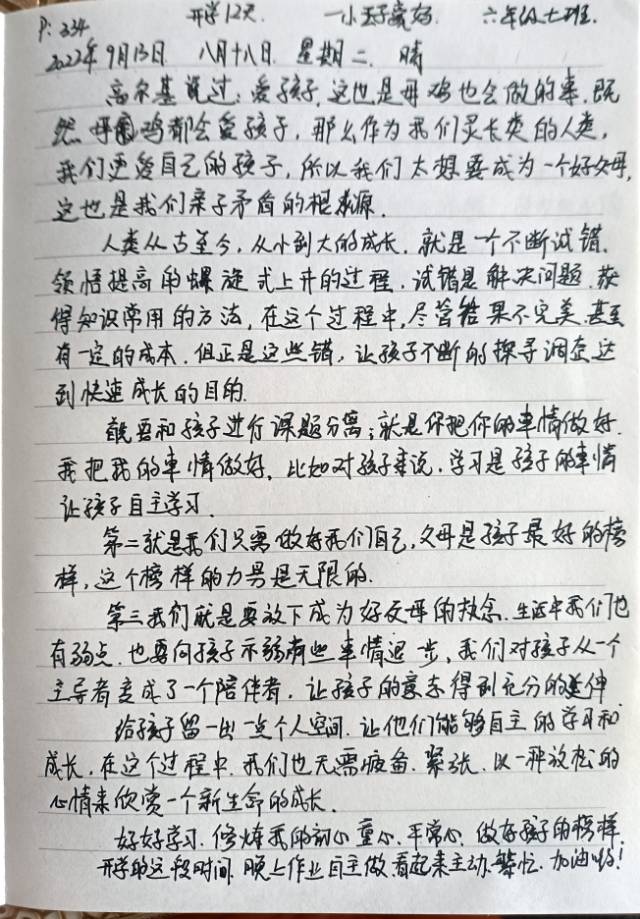 P: 334 开学12天 一小王子真好 六年级七班.
2022年9月13日 八月十八日 星期二 晴
高尔基说过: 爱孩子,这也是母鸡也会做的事.既
然母鸡都会爱孩子,那么作为我们灵长类的人类,
我们更爱自己的孩子,所以我们太想要成为一个好父母,
这也是我们亲子矛盾的根源.
人类从古至今,从小到大的成长.就是一个不断试错.
领悟提高的螺旋式上升的过程.试错是解决问题.获
得知识常用的方法,在这个过程中,尽管结果不完美.甚至
有一定的成本.但正是这些错,让孩子不断的探寻调查达
到快速成长的目的.
就要和孩子进行课题分离;就是你把你的事情做好.
我把我的事情做好,比如对孩子来说.学习是孩子的事情
让孩子自主学习.
第二就是我们只需做好我们自己,父母是孩子最好的榜
样,这个榜样的力量是无限的.
第三我们就是要放下成为好父母的执念.生活中我们也
有弱点.也要向孩子示弱有些事情退一步,我们对孩子从一个
主导者变成了一个陪伴者,让孩子的意志得到充分的延伸
给孩子留一出一点个人空间.让他们能够自主的学习和
成长,在这个过程中.我们也无需疲备.紧张.以一种放松的
心情来欣赏一个新生命的成长.
好好学习.修炼我的初心童心.平常心.做好孩子的榜样.
开学的这段时间.晚上作业自主做.看起来主动.繁忙.加油哟!